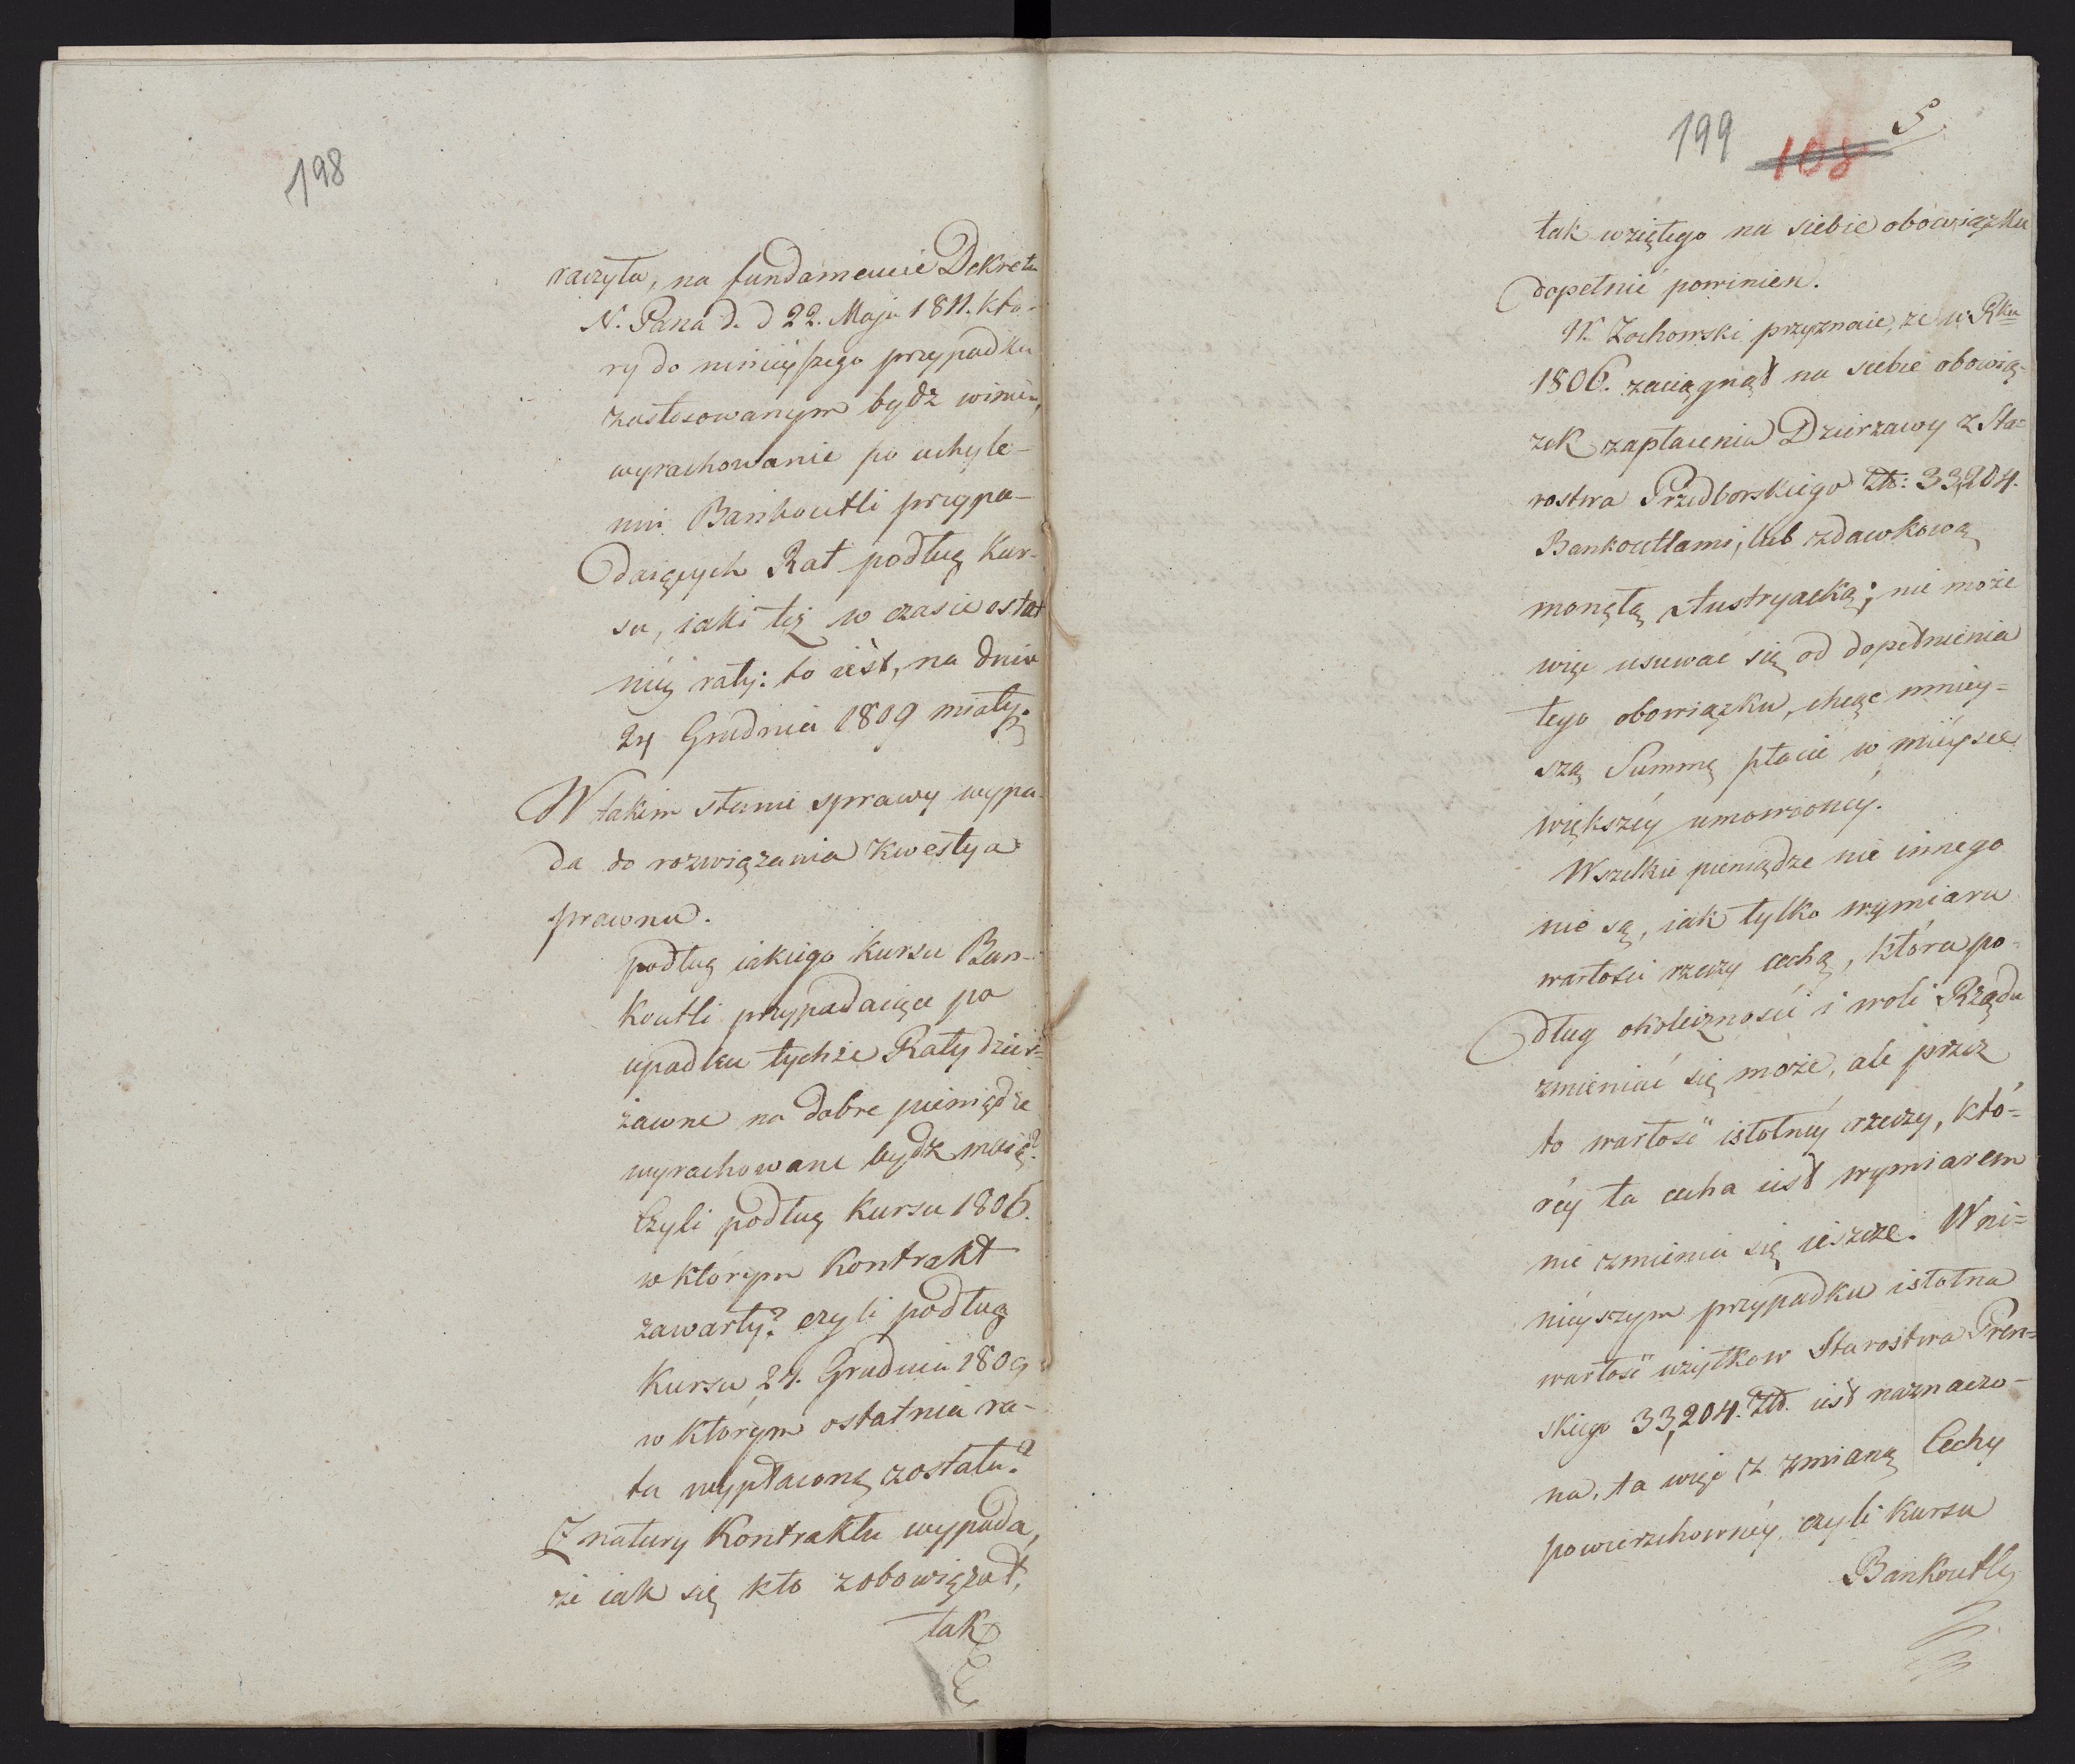 198
raczyła, na fundamencie Dekretu
N. Pana d. d 22. Maja 1811. któ-
ry do ninieyszego przypadku
zastosowanym bydź winien,
wyrachowanie po uchyle-
niu Bankoutli przypa-
daiących Rat podług Kur-
su, iaki też w czasie ostat
niéy raty: to iest, na dniu
24 Grudnia 1809 miały.
W takim stanie sprawy wypa-
da do rozwiązania kwestya
prawna.
podług iakiego kursu Ban-
koutli przypadaiące po
upadku tychże Raty dzier=
żawne na dobre pieniądze
wyrachowane bydź maią?
Czyli podług Kursu 1806.
w którym Kontrakt
zawarty? czyli podług
Kursu 24. Grudnia 1809
w którym ostatnia ra-
ta wypłaconą została?
Z natury Kontraktu wypada,
że iak się kto zobowiązał,
tak
199 108 5
tak wziętego na siebie obowiązku
dopełnić powinien.
W. Zochowski przyznaie, że w Rku
1806. zaciągnął na siebie obowią-
zek zapłacenia Dzierzawy z Sta=
rostwa Przedborskiego Zł: 33,204.
Bankocetlami, lub zdawkową
monętą Austryacką; nie może
więc usuwać się od dopełnienia
tego obowiązku, chcąc mniey=
szą Summę płacić w mieysce
większéy umowioney.
Wszelkie pieniądze nie innego
nie są, iak tylko wymiaru
wartości rzeczy cechą, która po-
dług okoliczności i woli Rządu
zmieniać się może, ale przez
to wartość istotnéy rzeczy, któ=
réy ta cecha iest wymiarem
nie zmienia się ieszcze. W ni=
nieyszym przypadku istotna
wartość użytkow Starostwa Pren=
skiego 33,204. Zł. iest naznaczo-
na, ta więc z zmianą Cechy
powierzchownéy czyli kursu
Bankoutli,